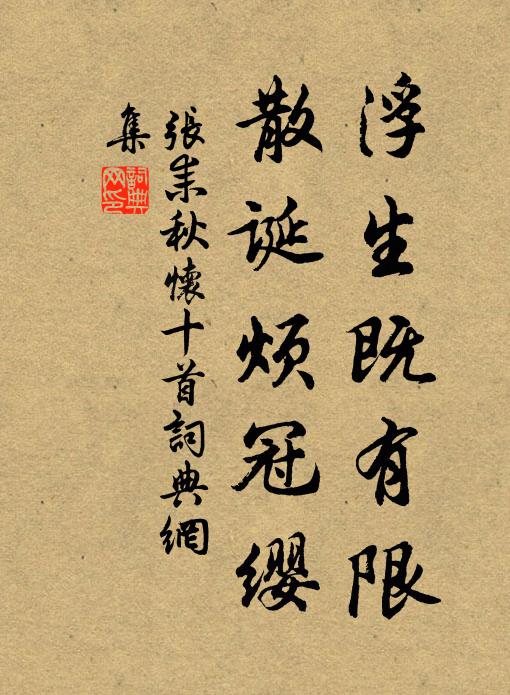 浮生既有限
散诞烦冠缨
張耒秋懷十首詞典網
集
詞典网印